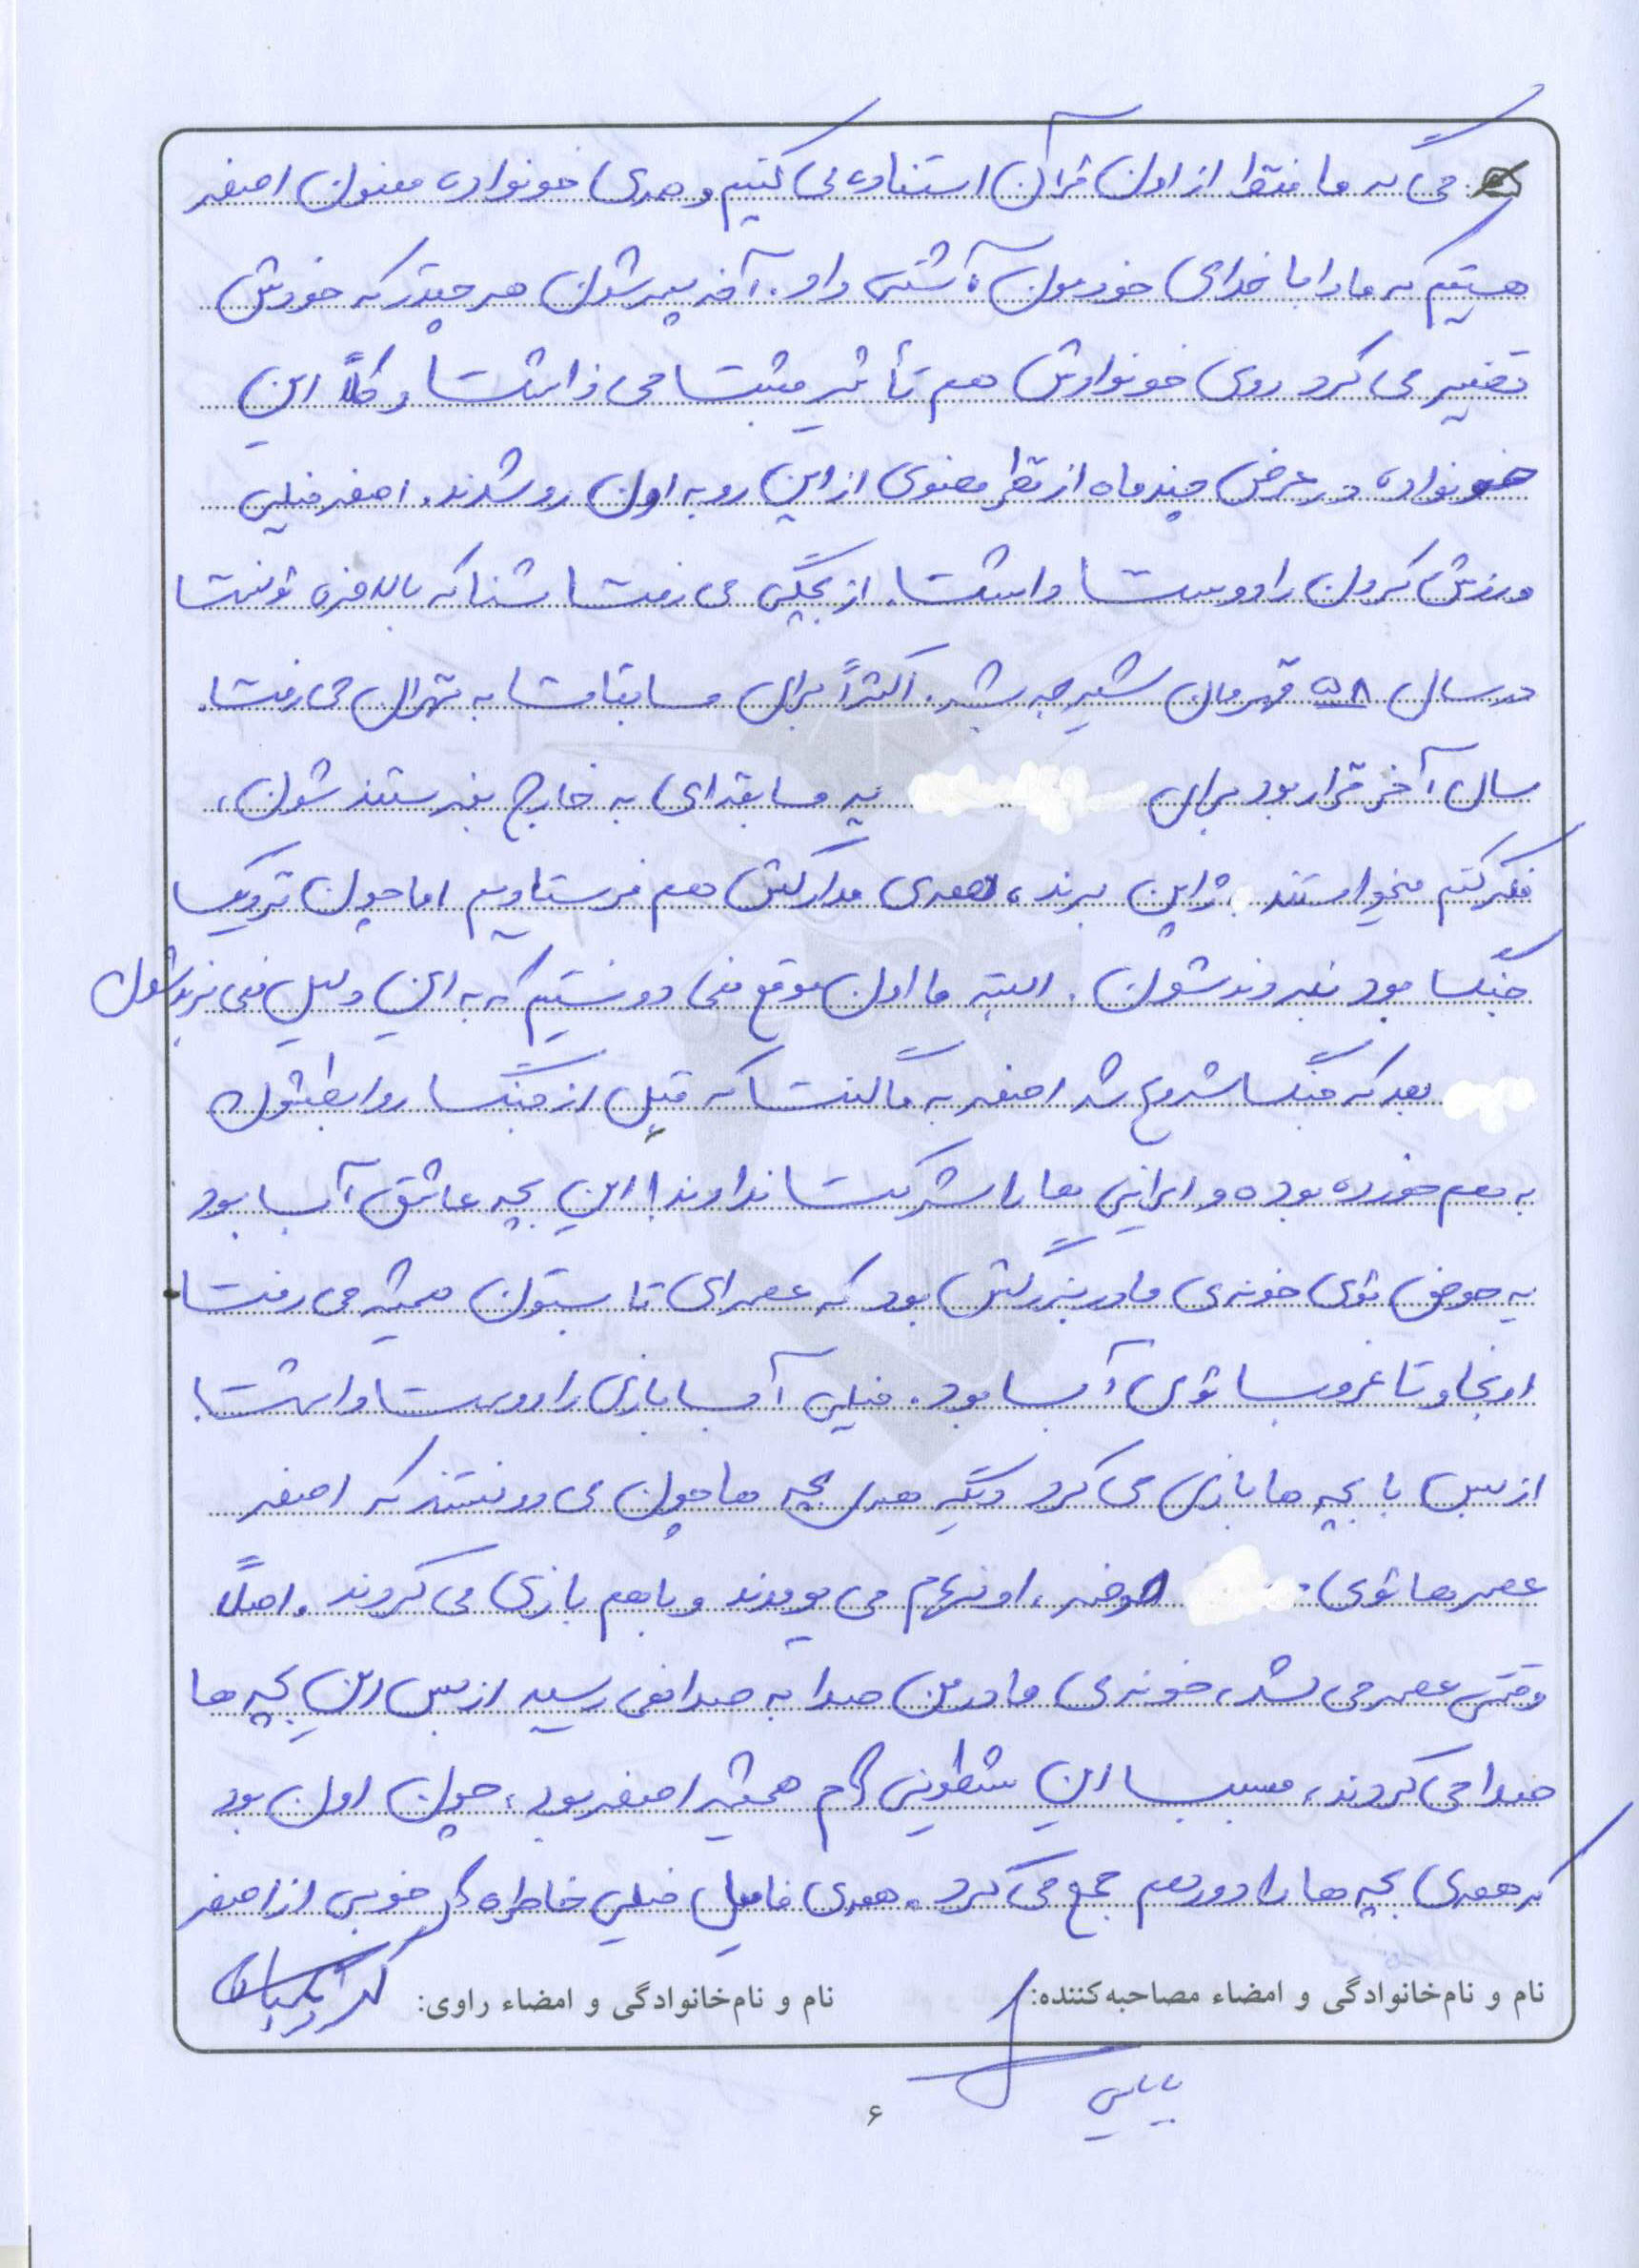 می‌گه ما فقط از اون قرآن استفاده می‌کنیم و همه‌ی خونواده ممنون اصغر
هستیم که ما را با خدای خودمون آشتی داد. آخه پسرشون هر چیقدر که خودش
تغییر می‌کرد روی خونوادش هم تأثیر مثبت می‌ذاشت و کلاً این
خونواده در عرض چند ماه از نظر معنوی از این رو به اون رو شدند. اصغر خیلی
ورزش کردن را دوست داشت. از بچگی می‌رفت شنا که بالاخره تونست
در سال ۵۸ قهرمان شیرجه بشه. اکثراً برای مسابقات به تهران می‌رفت.
سال آخر قرار بود برای یه مسابقه‌ای به خارج بفرستند شون،
فکر کنم میخواستند ژاپن برند، همه‌ی مدارکش هم فرستادیم اما چون نزدیک
جنگ بود نبردند شون. البته ما اون موقع نمی‌دونستیم که به این دلیل نمی‌برند شون
بعد که جنگ شروع شد اصغر به ما گفت که قبل از جنگ روابطشون
به هم خورده بوده و ایرانی‌ها را شرکت ندادند! این بچه عاشق آب بود
یه حوض توی خونه‌ی مادربزرگش بود که عصرای تابستون همیشه می‌رفت
اونجا و تا غروب توی آب بود. خیلی آب بازی را دوست داشت.
از بس با بچه‌ها بازی می‌کرد دیگه همه‌ بچه‌ها چون می‌دونستند که اصغر
عصرها توی حوضه، اونها هم می‌یومدند و باهم بازی می‌کردند. اصلاً
وقتی عصر می‌شد، خونه‌ی مادر من صدا به صدا نمی‌رسید از بس این بچه‌ها
صدا می‌کردند، مسبب این شطونی‌ها م همیشه اصغر بود، چون اون بود
که همه‌ی بچه‌ها را دور هم جمع می‌کرد. همه‌ی فامیل خیلی خاطره‌های خوبی از اصغر
نام و نام‌خانوادگی و امضاء مصاحبه‌کننده: نام و نام‌خانوادگی و امضاء راوی:
بابایی
۶